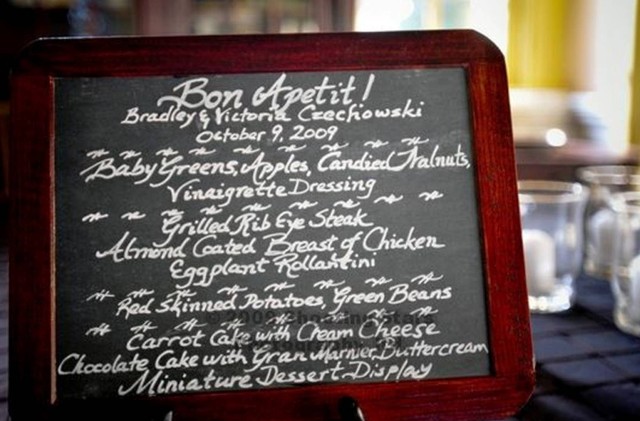 Bon Apetit!
Bradley & Victoria Czechowski
October 9, 2009
Baby Greens, Apples, Candied Walnuts,
Vinaigrette Dressing
Grilled Rib Eye Steak
Almond Coated Breast of Chicken
Eggplant Rollantini
Red Skinned Potatoes, Green Beans
Carrot Cake with Cream Cheese
Chocolate Cake with Gran Marnier Buttercream
Miniature Dessert Display